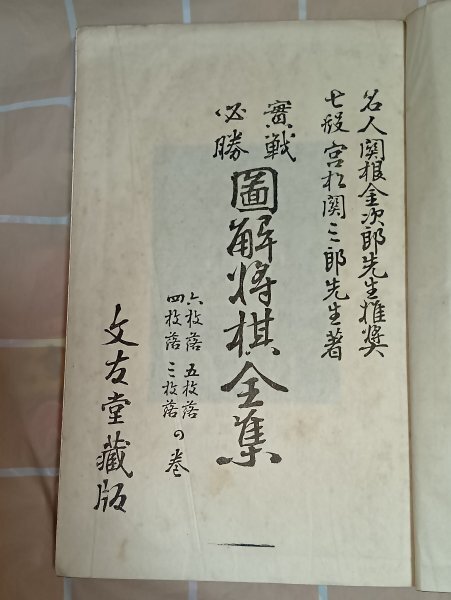 名人関根金次郎先生推奨
七段宮松関三郎先生著
實戰
必勝
圖解将棋全集
六枚落 五枚落
四枚落 三枚落
の巻
文友堂藏版